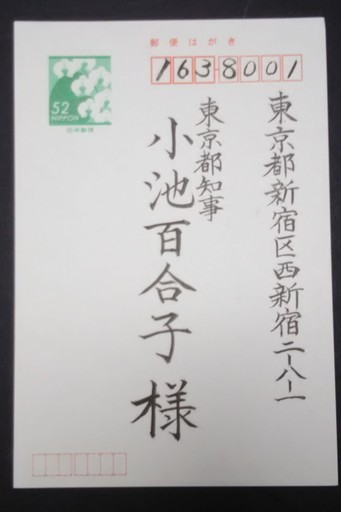 郵便はがき
163-8001
東京都新宿区西新宿二-八-一
東京都知事
小池百合子様
52
NIPPON
日本郵便